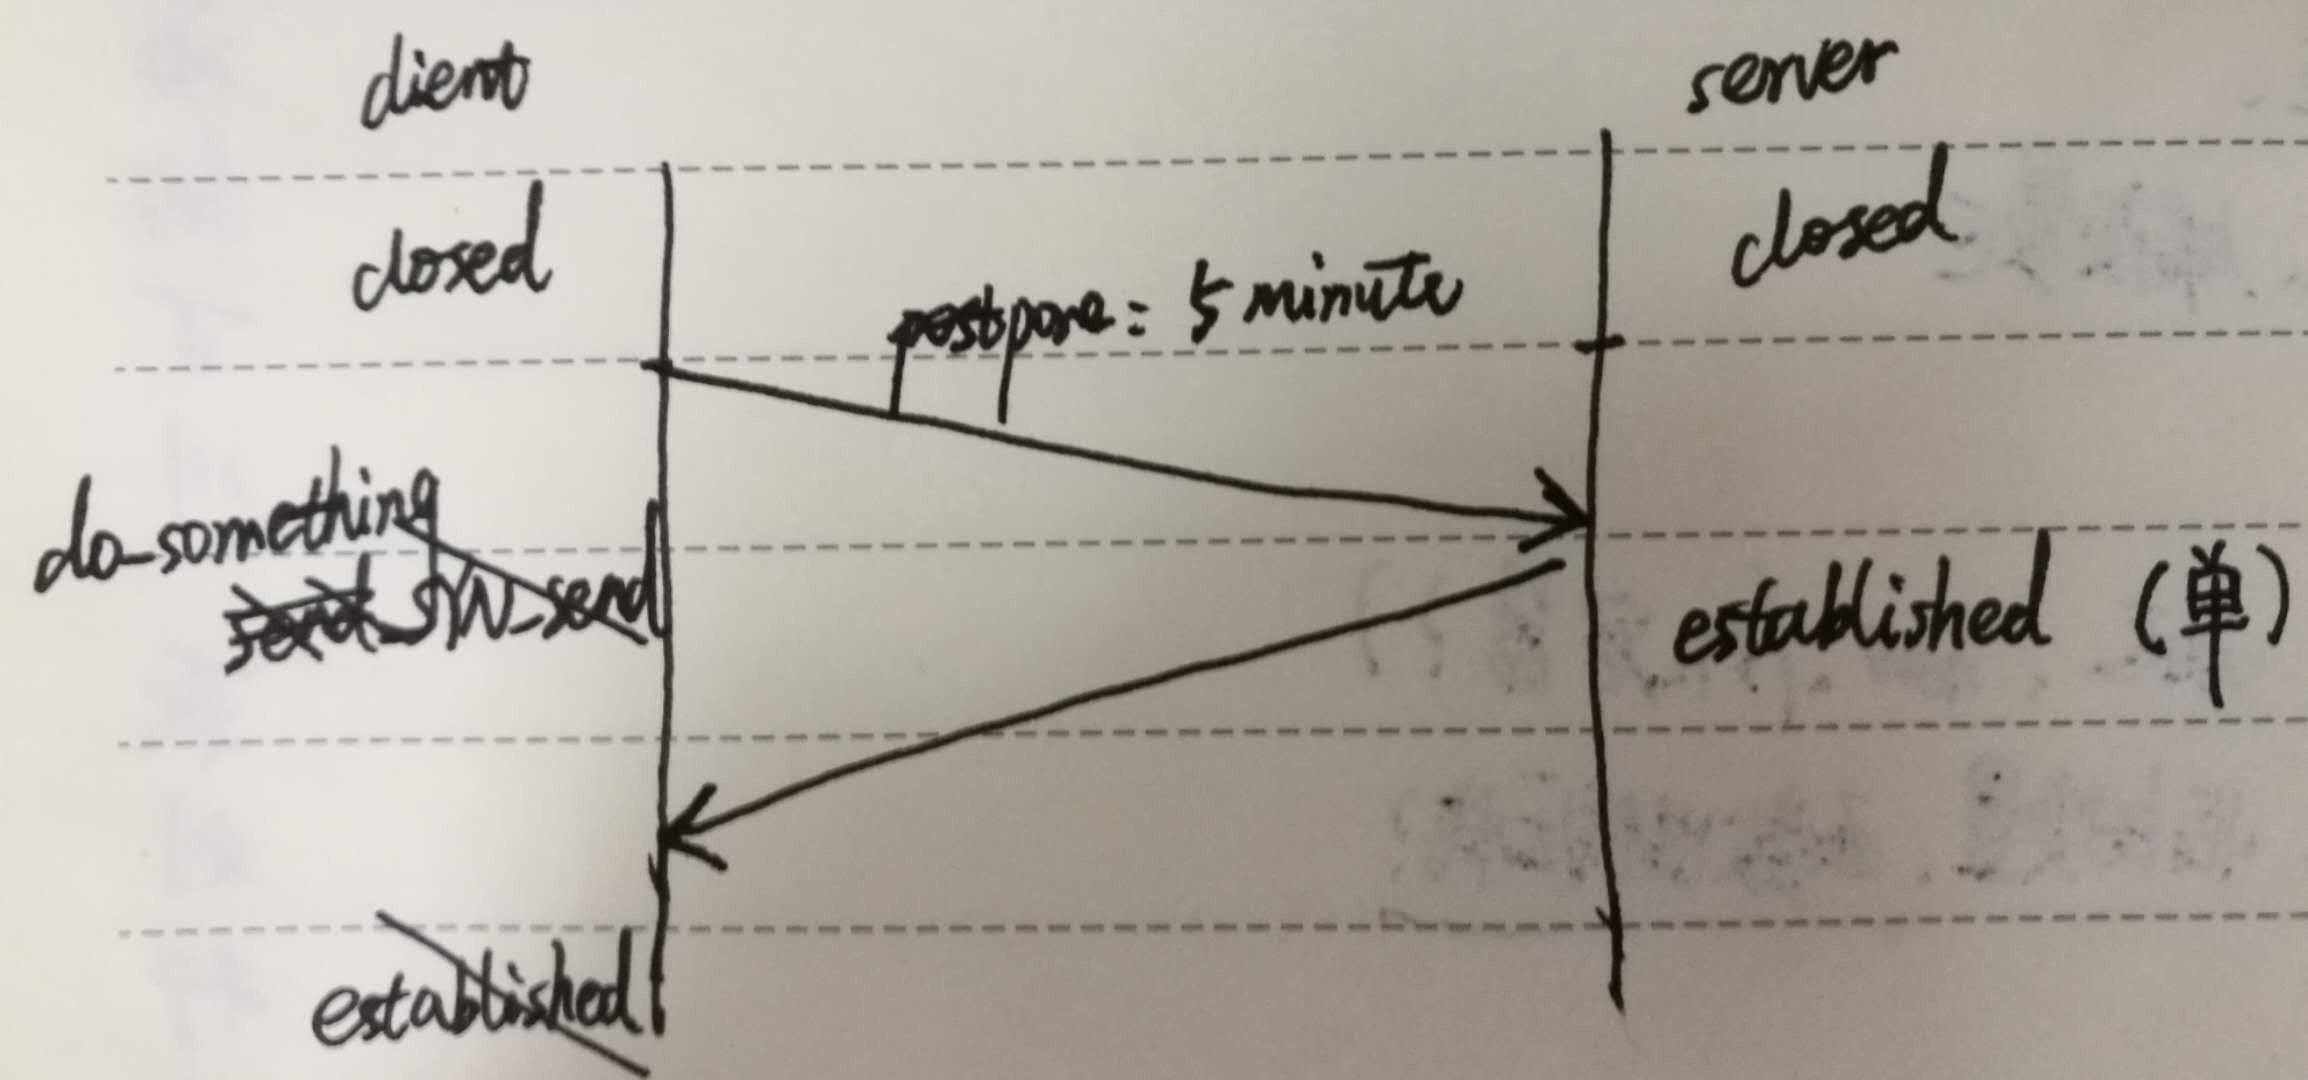 client server
closed closed
postpone: 5 minute
do_something
send_SYN_send
established (单)
established